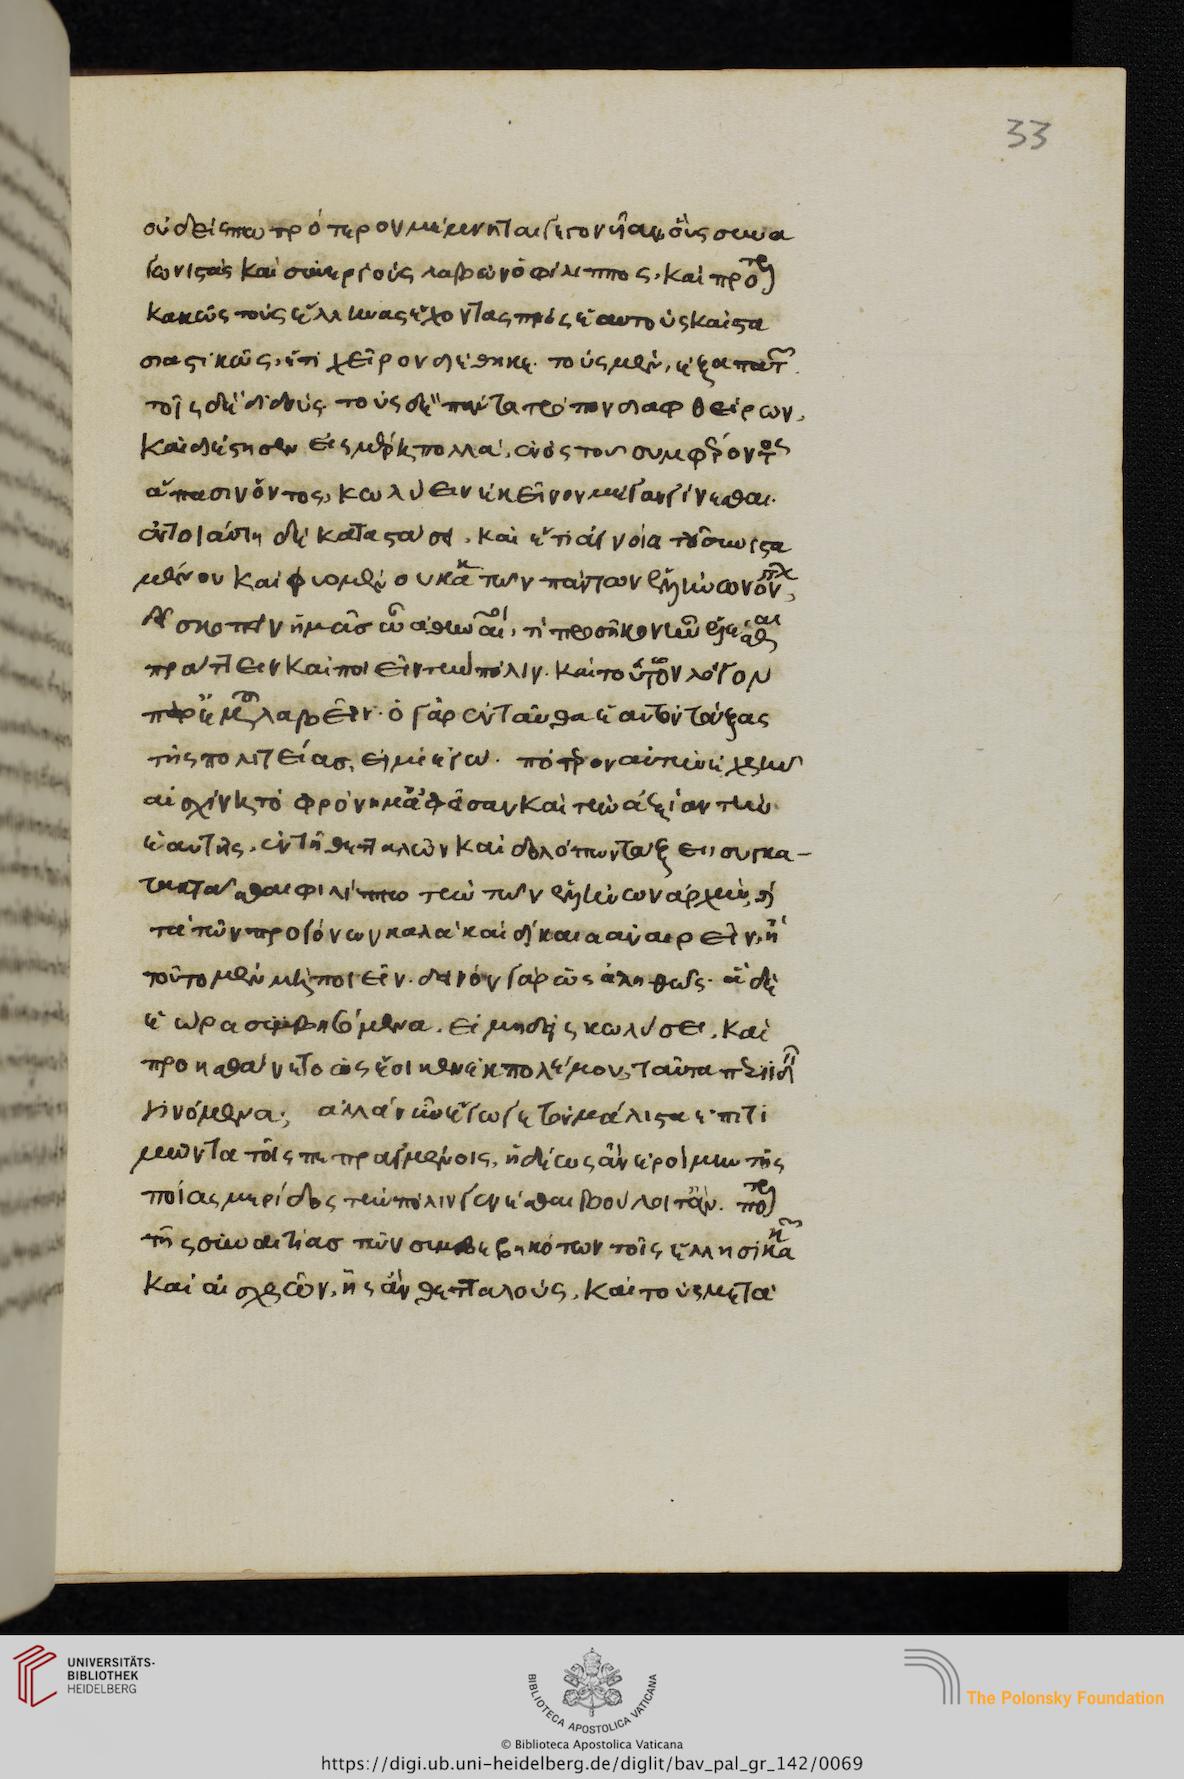 οὐδείς πω πρότερον μέμνηται γεγονυῖαν οὓς συνα
γωνιστὰς καὶ συνεργοὺς λαβὼν ὁ φίλιππος, καὶ πρότερον
κακῶς τοὺς ἕλληνας ἔχοντας πρὸς ἑαυτοὺς καὶ στα
σιαστικῶς, ἔτι χεῖρον διέθηκε. τοὺς μὲν, ἐξαπατῶν.
τοῖς δὲ διδούς. τοὺς δὲ πάντα τρόπον διαφθείρων,
καὶ διέστησεν εἰς μέρη πολλά, ἑνὸς τοῦ συμφέροντος
ἅπασιν ὄντος, κωλύειν ἐκεῖνον μέγαν γίνεσθαι.
ἐν τοιαύτη δὲ καταστάσει, καὶ ἔτι ἀγνοία τοῦ συνιστα
μένου καὶ φυομένου κακοῦ τῶν πάντων ἑλλήνων ὄντων,
δεῖ σκοπεῖν ἡμᾶς ὦ ἀθηναῖοι, τί προσῆκον ἦν ἑλέσθαι
πράττειν καὶ ποιεῖν τὴν πόλιν. καὶ τούτων λόγον
παρ ἐμοῦ λαβεῖν. ὁ γὰρ ἐνταῦθα ἑαυτὸν τάξας
τῆς πολιτείας, εἰμὶ ἐγώ. πότερον αὐτὴν ἐχρῆν
αἰσχίνη τὸ φρόνημα ἀφεῖσαν καὶ τὴν ἀξίαν τὴν
ἑαυτῆς, ἐν τῆ θετταλῶν καὶ δολόπων τάξει, συγκα-
τακτᾶσθαι φιλίππω τὴν τῶν ἑλλήνων ἀρχὴν, καὶ
τὰ τῶν προγόνων καλὰ καὶ δίκαια ἀναιρεῖν, ἢ
τοῦτο μὲν μὴ ποιεῖν. δεινὸν γὰρ ὡς ἀληθῶς. ἃ δὲ
ἑώρα συμβησόμενα, εἰ μηδεὶς κωλύσει, καὶ
προησθάνετο ὡς ἔοικεν ἐκ πολέμου, ταῦτα περιιδεῖν
γινόμενα; ἀλλὰ νῦν ἔγωγε τὸν μάλιστα ἐπιτι
μῶντα τοῖς πεπραγμένοις, ἡδέως ἂν ἐροίμην τῆς
ποίας μερίδος τὴν πόλιν γενέσθαι βούλοιτ ἄν. πότερον
τῆς συναιτίας τῶν συμβεβηκότων τοῖς ἕλλησι κακῶν
καὶ αἰσχρῶν, ἧς ἂν θετταλοὺς, καὶ τοὺς μετὰ
33
UNIVERSITÄTS-
BIBLIOTHEK
HEIDELBERG
BIBLIOTECA APOSTOLICA VATICANA
The Polonsky Foundation
© Biblioteca Apostolica Vaticana
https://digi.ub.uni-heidelberg.de/diglit/bav_pal_gr_142/0069